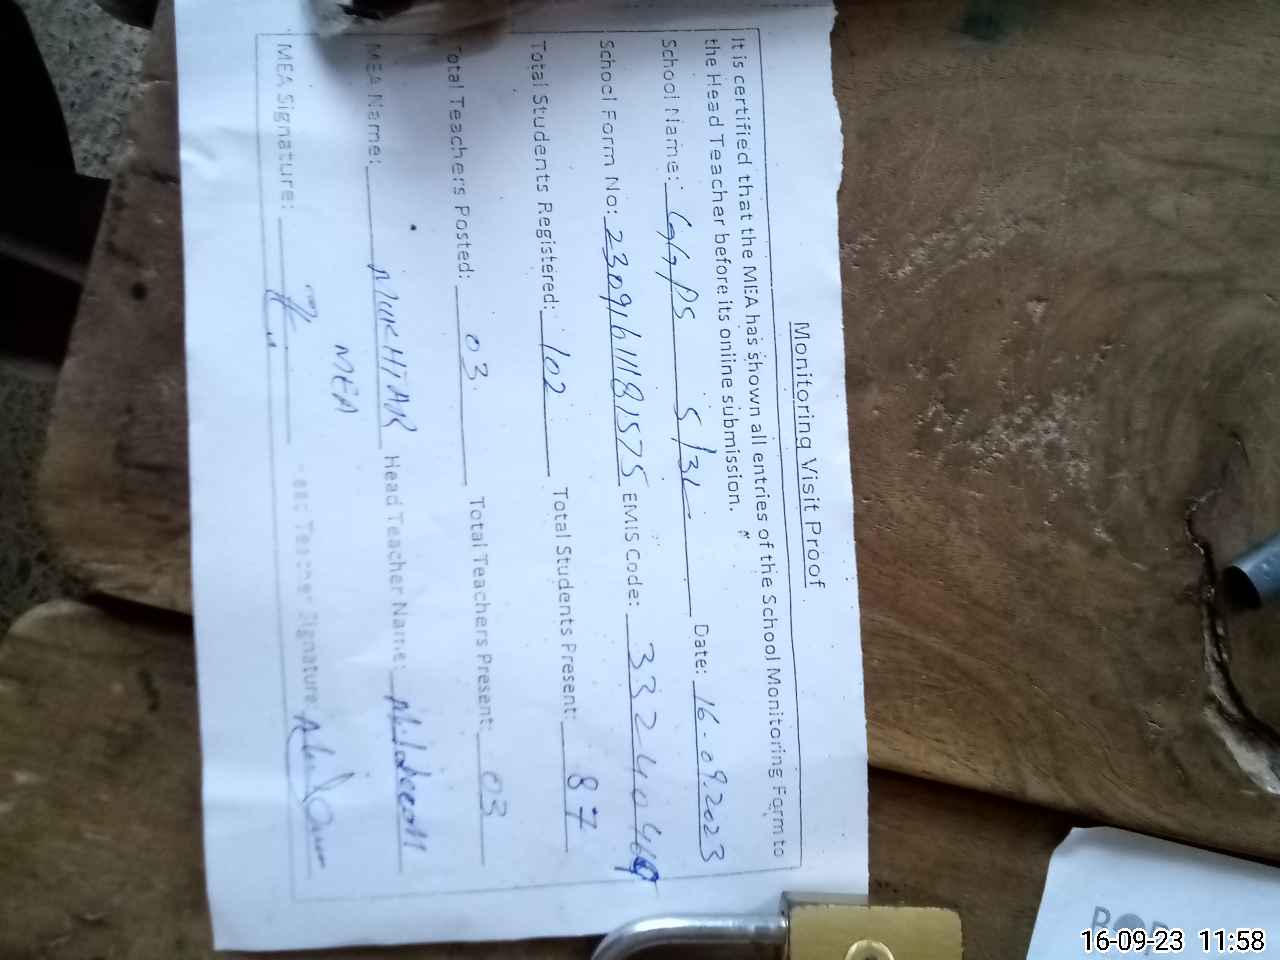 Monitoring Visit Proof
It is certified that the MEA has shown all entries of the School Monitoring Form to
the Head Teacher before its online submission.
School Name: GGPS 5/3L Date: 16-09.2023
School Form No: 23091611181575 EMIS Code: 332404
Total Students Registered: 102 Total Students Present: 87
Total Teachers Posted: 03 Total Teachers Present: 03
MEA Name: MUKHTAR Head Teacher Name:
MEA
MEA Signature: Teacher Signature:
16-09-23 11:58